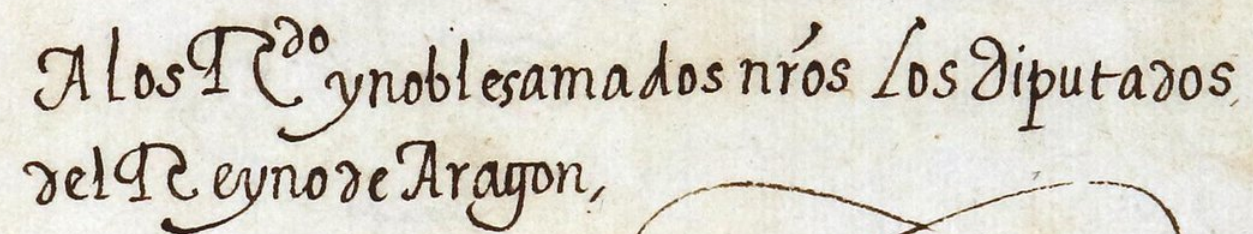 A los R^do y nobles amados nr̃os Los Diputados
del Reyno de Aragon,